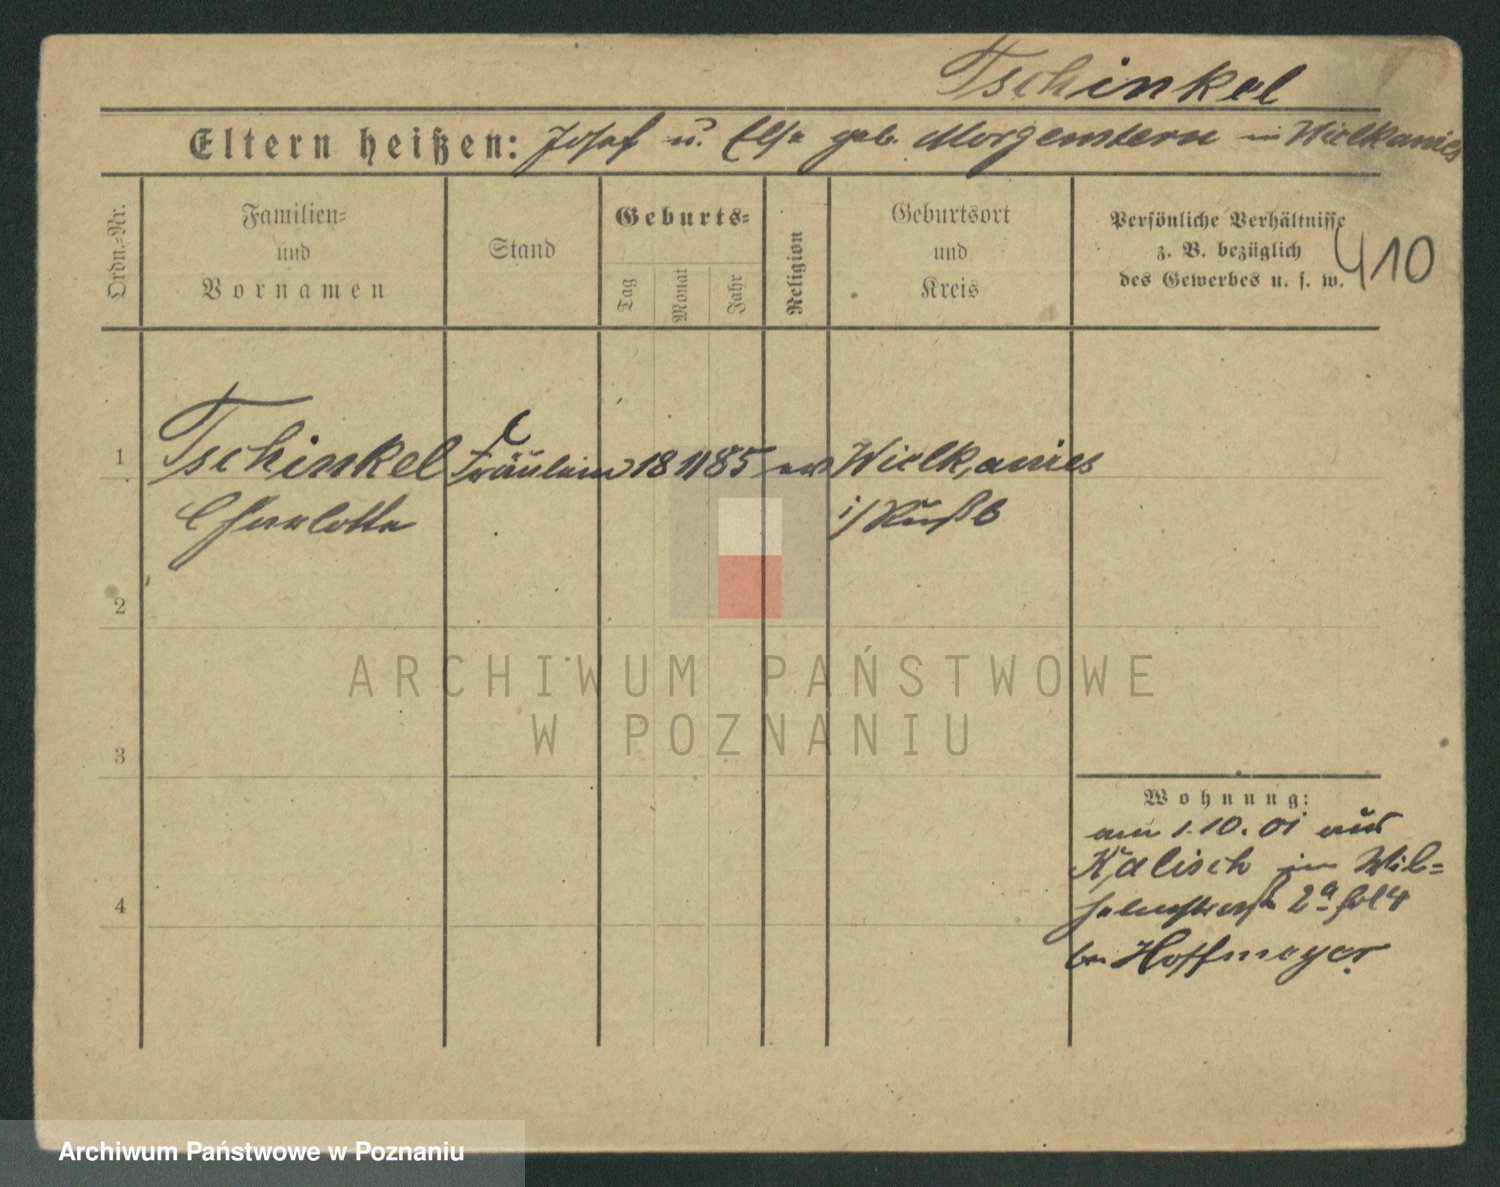 Tschinkel
Eltern heißen: Josef u. Else geb. Morgenstern in Wielkanies
Ordn.-Nr.
Familien-
und
Vornamen
Stand
Geburts-
Tag
Monat
Jahr
Religion
Geburtsort
und
Kreis
Persönliche Verhältnisse
z. B. bezüglich
des Gewerbes u. s. w.
410
1 Tschinkel Fräulein 18 11 85 ev Wielkanies
Charlotte i/Rußl
2
ARCHIWUM PAŃSTWOWE
W POZNANIU
3
Wohnung:
am 1.10.01 aus
Kalisch in Wil-
helmstraße 2a
4
bei Hoffmeyer
Archiwum Państwowe w Poznaniu